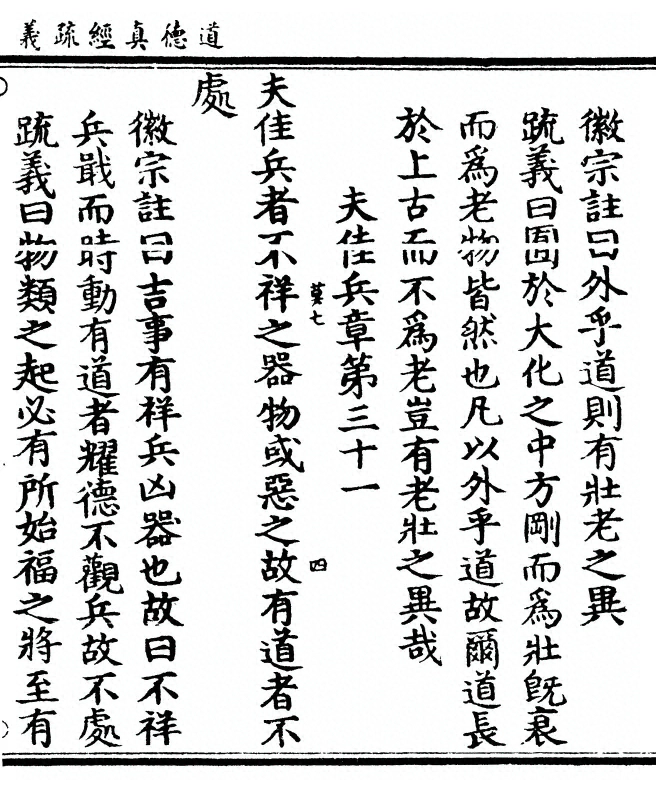 道德真經疏義
徽宗註曰外乎道則有壯老之異
疏義曰囿於大化之中方剛而為壯旣衰
而為老物皆然也凡以外乎道故爾道長
於上古而不為老豈有老壯之異哉
夫佳兵章第三十一
莫七
四
夫佳兵者不祥之器物或惡之故有道者不
處
徽宗註曰吉事有祥兵凶器也故曰不祥
兵戢而時動有道者耀德不觀兵故不處
疏義曰物類之起必有所始福之將至有